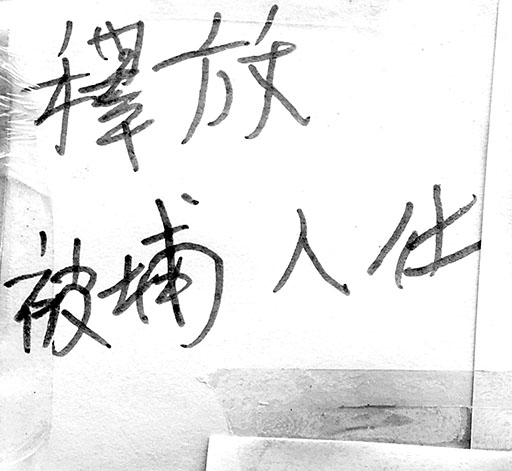 釋放
被埔人仕